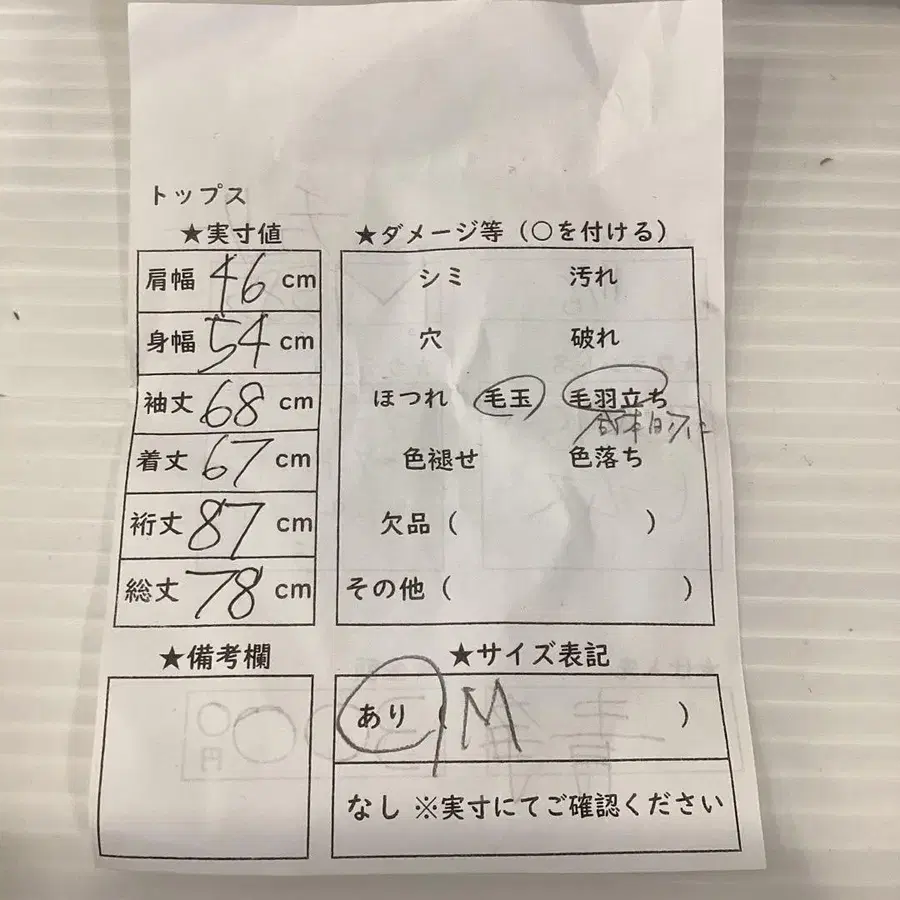 トップス
★実寸値
肩幅 46 cm
身幅 54 cm
袖丈 68 cm
着丈 67 cm
裄丈 87 cm
総丈 78 cm
★ダメージ等（○を付ける）
シミ 汚れ
穴 破れ
ほつれ 毛玉 毛羽立ち
全体的に
色褪せ 色落ち
欠品（ ）
その他（ ）
★備考欄
★サイズ表記
あり（M ）
なし ※実寸にてご確認ください